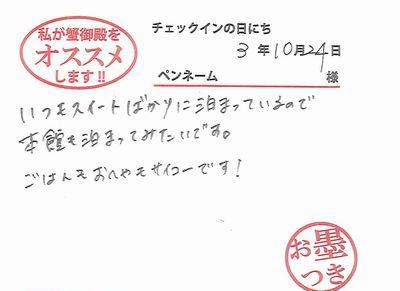 私が蟹御殿を
オススメ
します!!
チェックインの日にち
3年10月24日
ペンネーム 様
いつもスイートばかりに泊まっているので
本館も泊まってみたいです。
ごはんもおへやもサイコーです!
お墨
つき